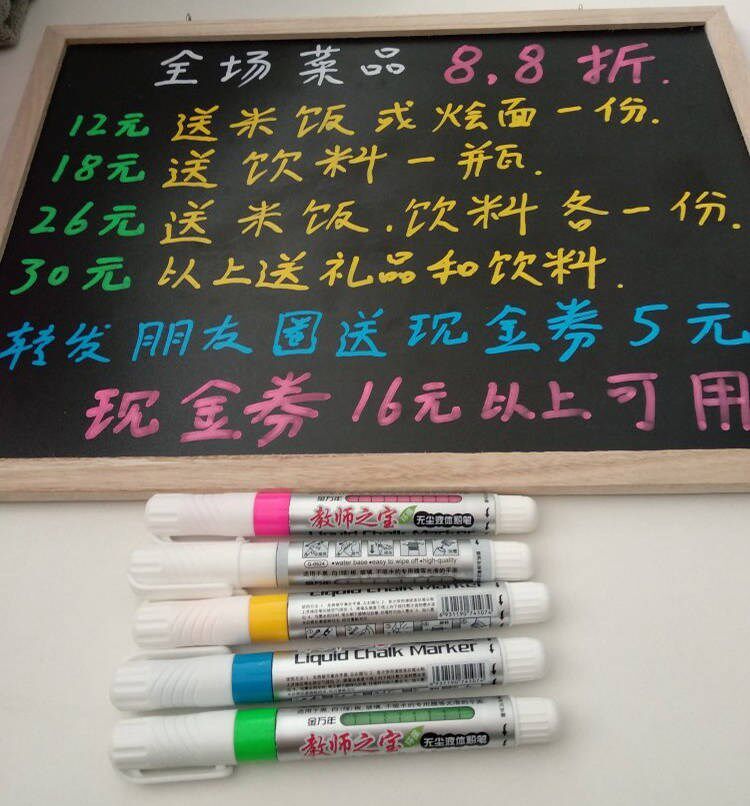 全场菜品 8.8折.
12元 送米饭或烩面一份.
18元 送饮料一瓶.
26元 送米饭.饮料各一份.
30元 以上送礼品和饮料.
转发朋友圈送现金券5元
现金券16元以上可用
金万年
教师之宝 无尘液体粉笔
Liquid Chalk Marker
G-0924 •water base •easy to wipe off •high-quality
Liquid Chalk Marker
Liquid Chalk Marker
金万年
教师之宝 无尘液体粉笔